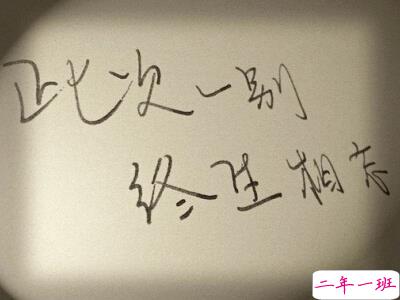 此次一别
终生相忘
二年一班